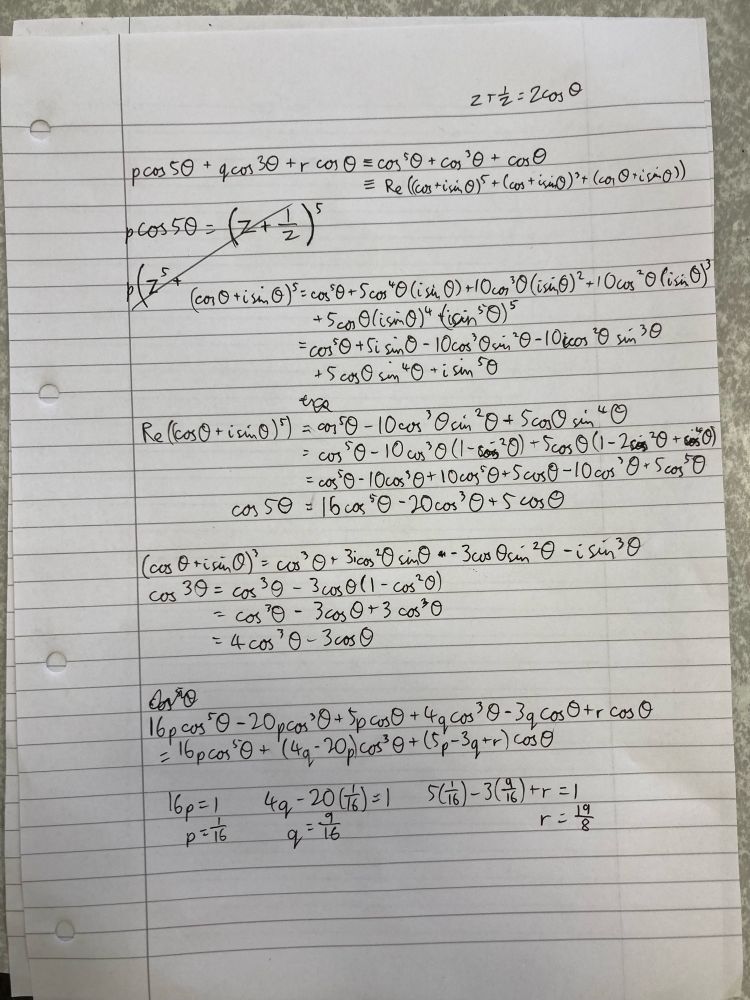 z + 1/z = 2cosθ
pcos5θ + qcos3θ + r cosθ ≡ cos⁵θ + cos³θ + cosθ
≡ Re((cos+isinθ)⁵ + (cos+isinθ)³ + (cosθ+isinθ))
pcos5θ = (z + 1/z)⁵
p(z⁵ +
(cosθ+isinθ)⁵ = cos⁵θ + 5cos⁴θ(isinθ) + 10cos³θ(isinθ)² + 10cos²θ(isinθ)³
+ 5cosθ(isinθ)⁴ + (isin⁵θ)⁵
= cos⁵θ + 5isinθ - 10cos³θsin²θ - 10icos²θ sin³θ
+ 5cosθsin⁴θ + isin⁵θ
Re((cosθ+isinθ)⁵) = cos⁵θ - 10cos³θsin²θ + 5cosθsin⁴θ
= cos⁵θ - 10cos³θ(1-cos²θ) + 5cosθ(1-2cos²θ + cos⁴θ)
= cos⁵θ - 10cos³θ + 10cos⁵θ + 5cosθ - 10cos³θ + 5cos⁵θ
cos5θ = 16cos⁵θ - 20cos³θ + 5cosθ
(cosθ+isinθ)³ = cos³θ + 3icos²θsinθ - 3cosθsin²θ - isin³θ
cos3θ = cos³θ - 3cosθ(1-cos²θ)
= cos³θ - 3cosθ + 3cos³θ
= 4cos³θ - 3cosθ
16pcos⁵θ - 20pcos³θ + 5pcosθ + 4qcos³θ - 3qcosθ + rcosθ
= 16pcos⁵θ + (4q-20p)cos³θ + (5p-3q+r)cosθ
16p = 1 4q - 20(1/16) = 1 5(1/16) - 3(9/16) + r = 1
p = 1/16 q = 9/16 r = 19/8